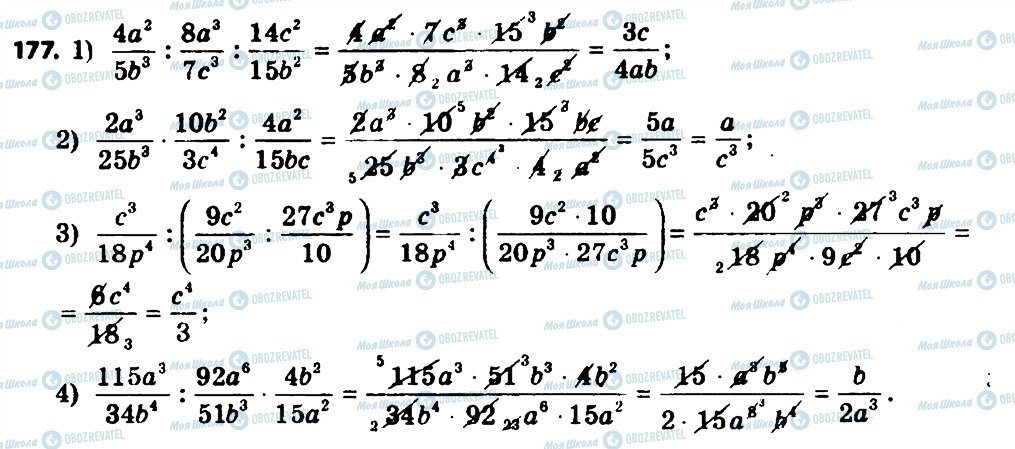 177. 1) 4a²/5b³ : 8a³/7c³ : 14c²/15b² = (4a² · 7c³ · 15³ b²)/(5b³ · 8₂ a³ · 14₂ c²) = 3c/4ab;
2) 2a³/25b³ · 10b²/3c⁴ : 4a²/15bc = (2a³ · 10⁵ b² · 15³ bc)/(₅25b³ · 3c⁴³ · 4₂ a²) = 5a/5c³ = a/c³;
3) c³/18p⁴ : (9c²/20p³ : 27c³p/10) = c³/18p⁴ : (9c² · 10/20p³ · 27c³p) = (c³ · 20² p³ · 27³ c³ p)/(₂18 p⁴ · 9c² · 10) =
= 6c⁴/18₃ = c⁴/3;
4) 115a³/34b⁴ : 92a⁶/51b³ · 4b²/15a² = (⁵115a³ · 51³ b³ · 4b²)/(₂34b⁴ · 92₂₃ a⁶ · 15a²) = (15 · a³b⁵)/(2 · 15a⁸³ b⁴) = b/2a³.
Моя Школа OBOZREVATEL